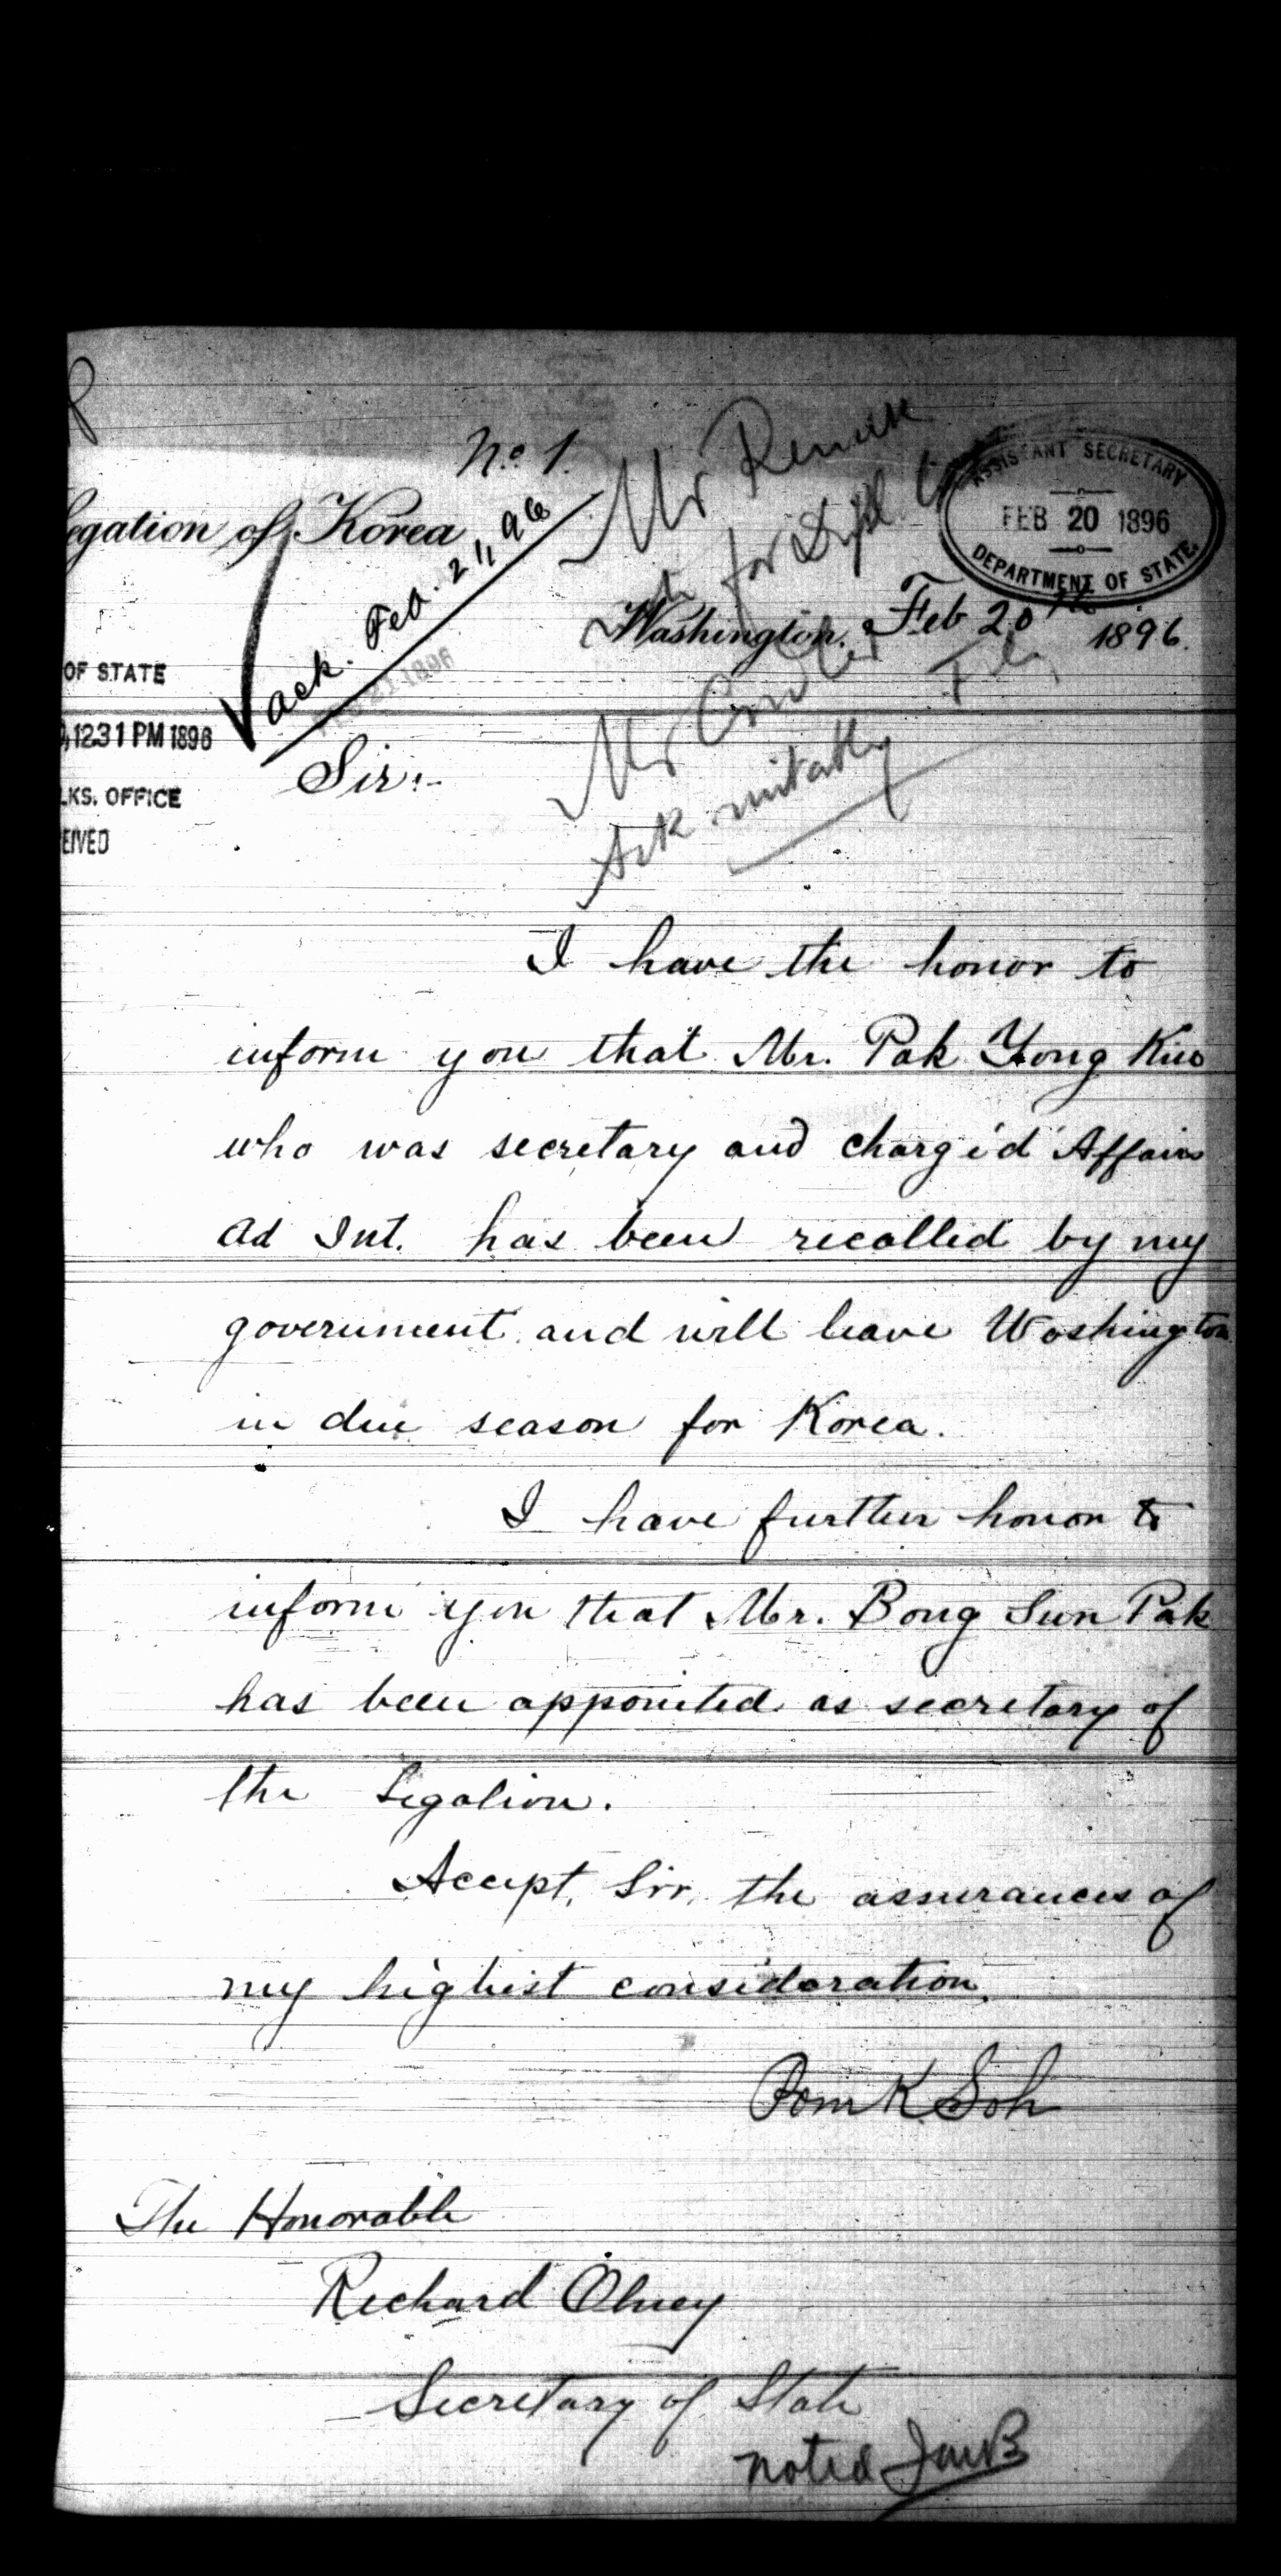 No 1.
egation of Korea
ASSISTANT SECRETARY
FEB 20 1896
DEPARTMENT OF STATE.
Mr
for Dipl.
ack. Feb. 21, 96
Washington, Feb 20th 1896.
21 1896
OF STATE
12 31 PM 1896
LKS. OFFICE
EIVED
Mr
Ack
Sir:-
I have the honor to
inform you that Mr. Pak Yong Kiu
who was secretary and chargé d'Affairs
Ad Int. has been recalled by my
government and will leave Washington
in due season for Korea.
I have further honor to
inform you that Mr. Bong Sun Pak
has been appointed as secretary of
the Legation.
Accept, Sir, the assurances of
my highest consideration.
Pom K Soh
The Honorable
Richard Olney
Secretary of State
noted